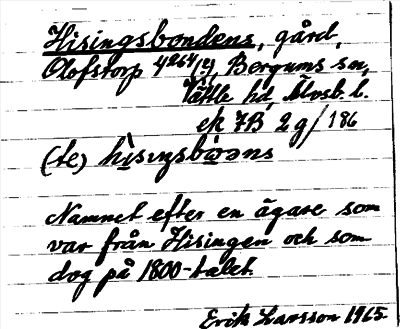 Hisingsbondens, gård,
Olofstorp 4264(2), Bergums sn,
Vättle hd, Älvsb. l.
ek 7B 2g/186
(te) hìsıŋsbòn̥əns
Namnet efter en ägare som
var från Hisingen och som
dog på 1800-talet.
Erik Larsson 1965.